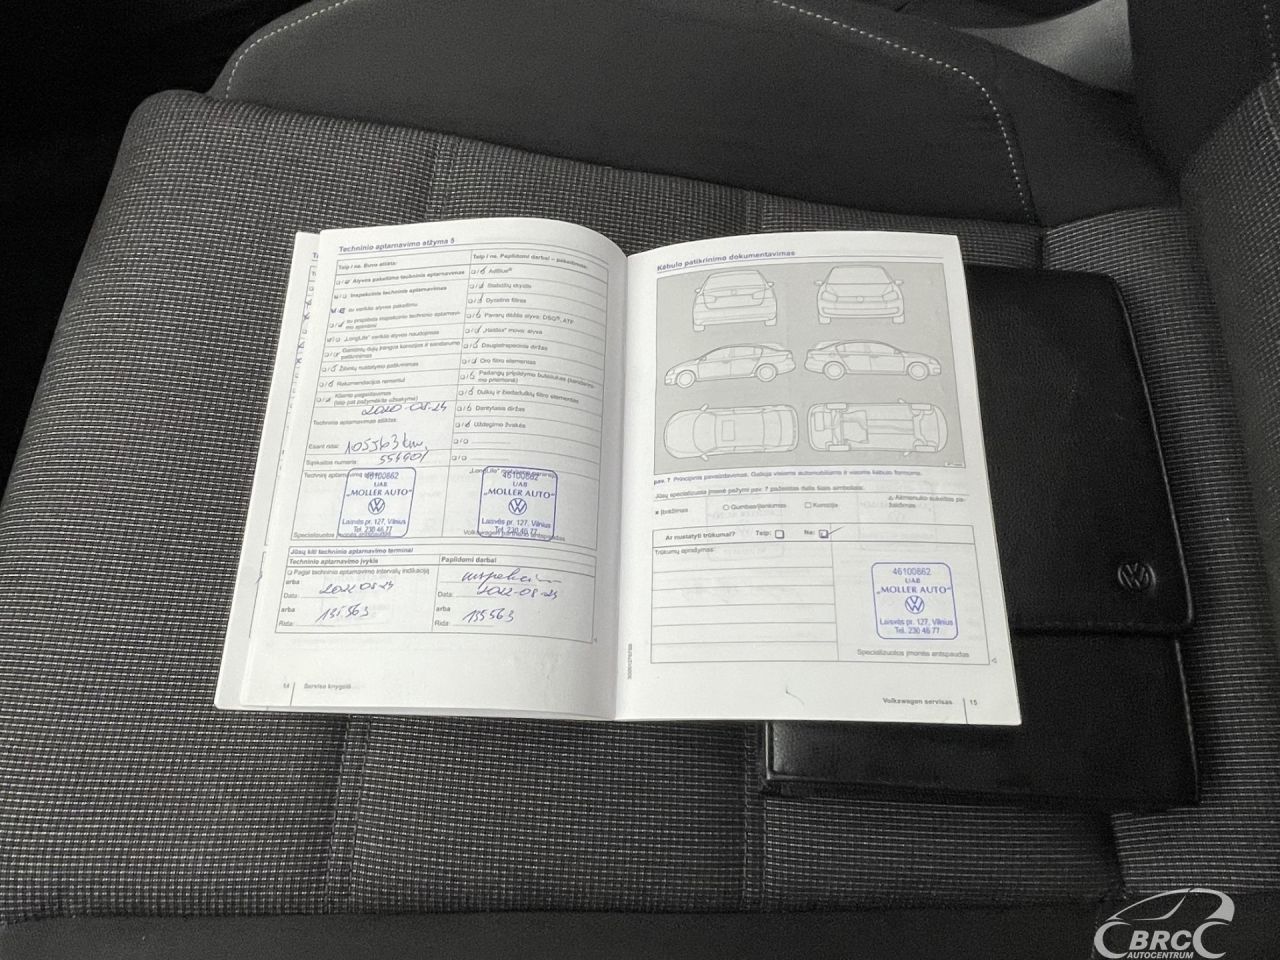 Techninio aptarnavimo atžyma 5
Taip / ne. Buvo atlikta:
Alyvos pakeitimo techninis aptarnavimas
Inspekcinis techninis aptarnavimas
su variklio alyvos pakeitimu
su papildoma inspekcinio techninio aptarnavimo apimtimi
„LongLife“ variklio alyvos naudojimas
Žibintų nustatymo patikrinimas
Rekomendacijos remontui
Kliento pageidavimas
Techninis aptarnavimas atliktas:
2020-08-24
Esant ridai: 105563 km,
Sąskaitos numeris:
Taip / ne. Papildomi darbai – pakeitimas:
AdBlue®
Stabdžių skystis
Dyzelino filtras
Pavarų dėžės alyva: DSG®, ATF
„Haldex“ movos alyva
Daugiatrapecinis diržas
Oro filtro elementas
Dulkių ir žiedadulkių filtro elementas
Dantytasis diržas
Uždegimo žvakės
46100862
UAB
„MOLLER AUTO“
Laisvės pr. 127, Vilnius
Tel. 230 46 77
Specializuotos įmonės antspaudas
46100862
UAB
„MOLLER AUTO“
Laisvės pr. 127, Vilnius
Tel. 230 46 77
Volkswagen partnerio antspaudas
Jūsų kiti techninio aptarnavimo terminai
Techninio aptarnavimo įvykis
Papildomi darbai
Pagal techninio aptarnavimo intervalų indikaciją
arba
Data: 2022 08-24
arba
Rida: 135563
Data: 2022-08-24
arba
Rida: 135563
14 Serviso knygelė
Kėbulo patikrinimo dokumentavimas
pav. 7 Principinis pavaizdavimas. Galioja visiems automobiliams ir visoms kėbulo formoms.
Jūsų specializuota įmonė pažymi pav. 7 pažeistas dalis šiais simboliais.
Įbrėžimas
Gumbas/įlenkimas
Korozija
Akmenuko sukeltas pažeidimas
Ar nustatyti trūkumai? Taip: Ne:
Trūkumų aprašymas:
46100862
UAB
„MOLLER AUTO“
Laisvės pr. 127, Vilnius
Tel. 230 46 77
Specializuotos įmonės antspaudas
Volkswagen servisas 15
BRC
AUTOCENTRUM